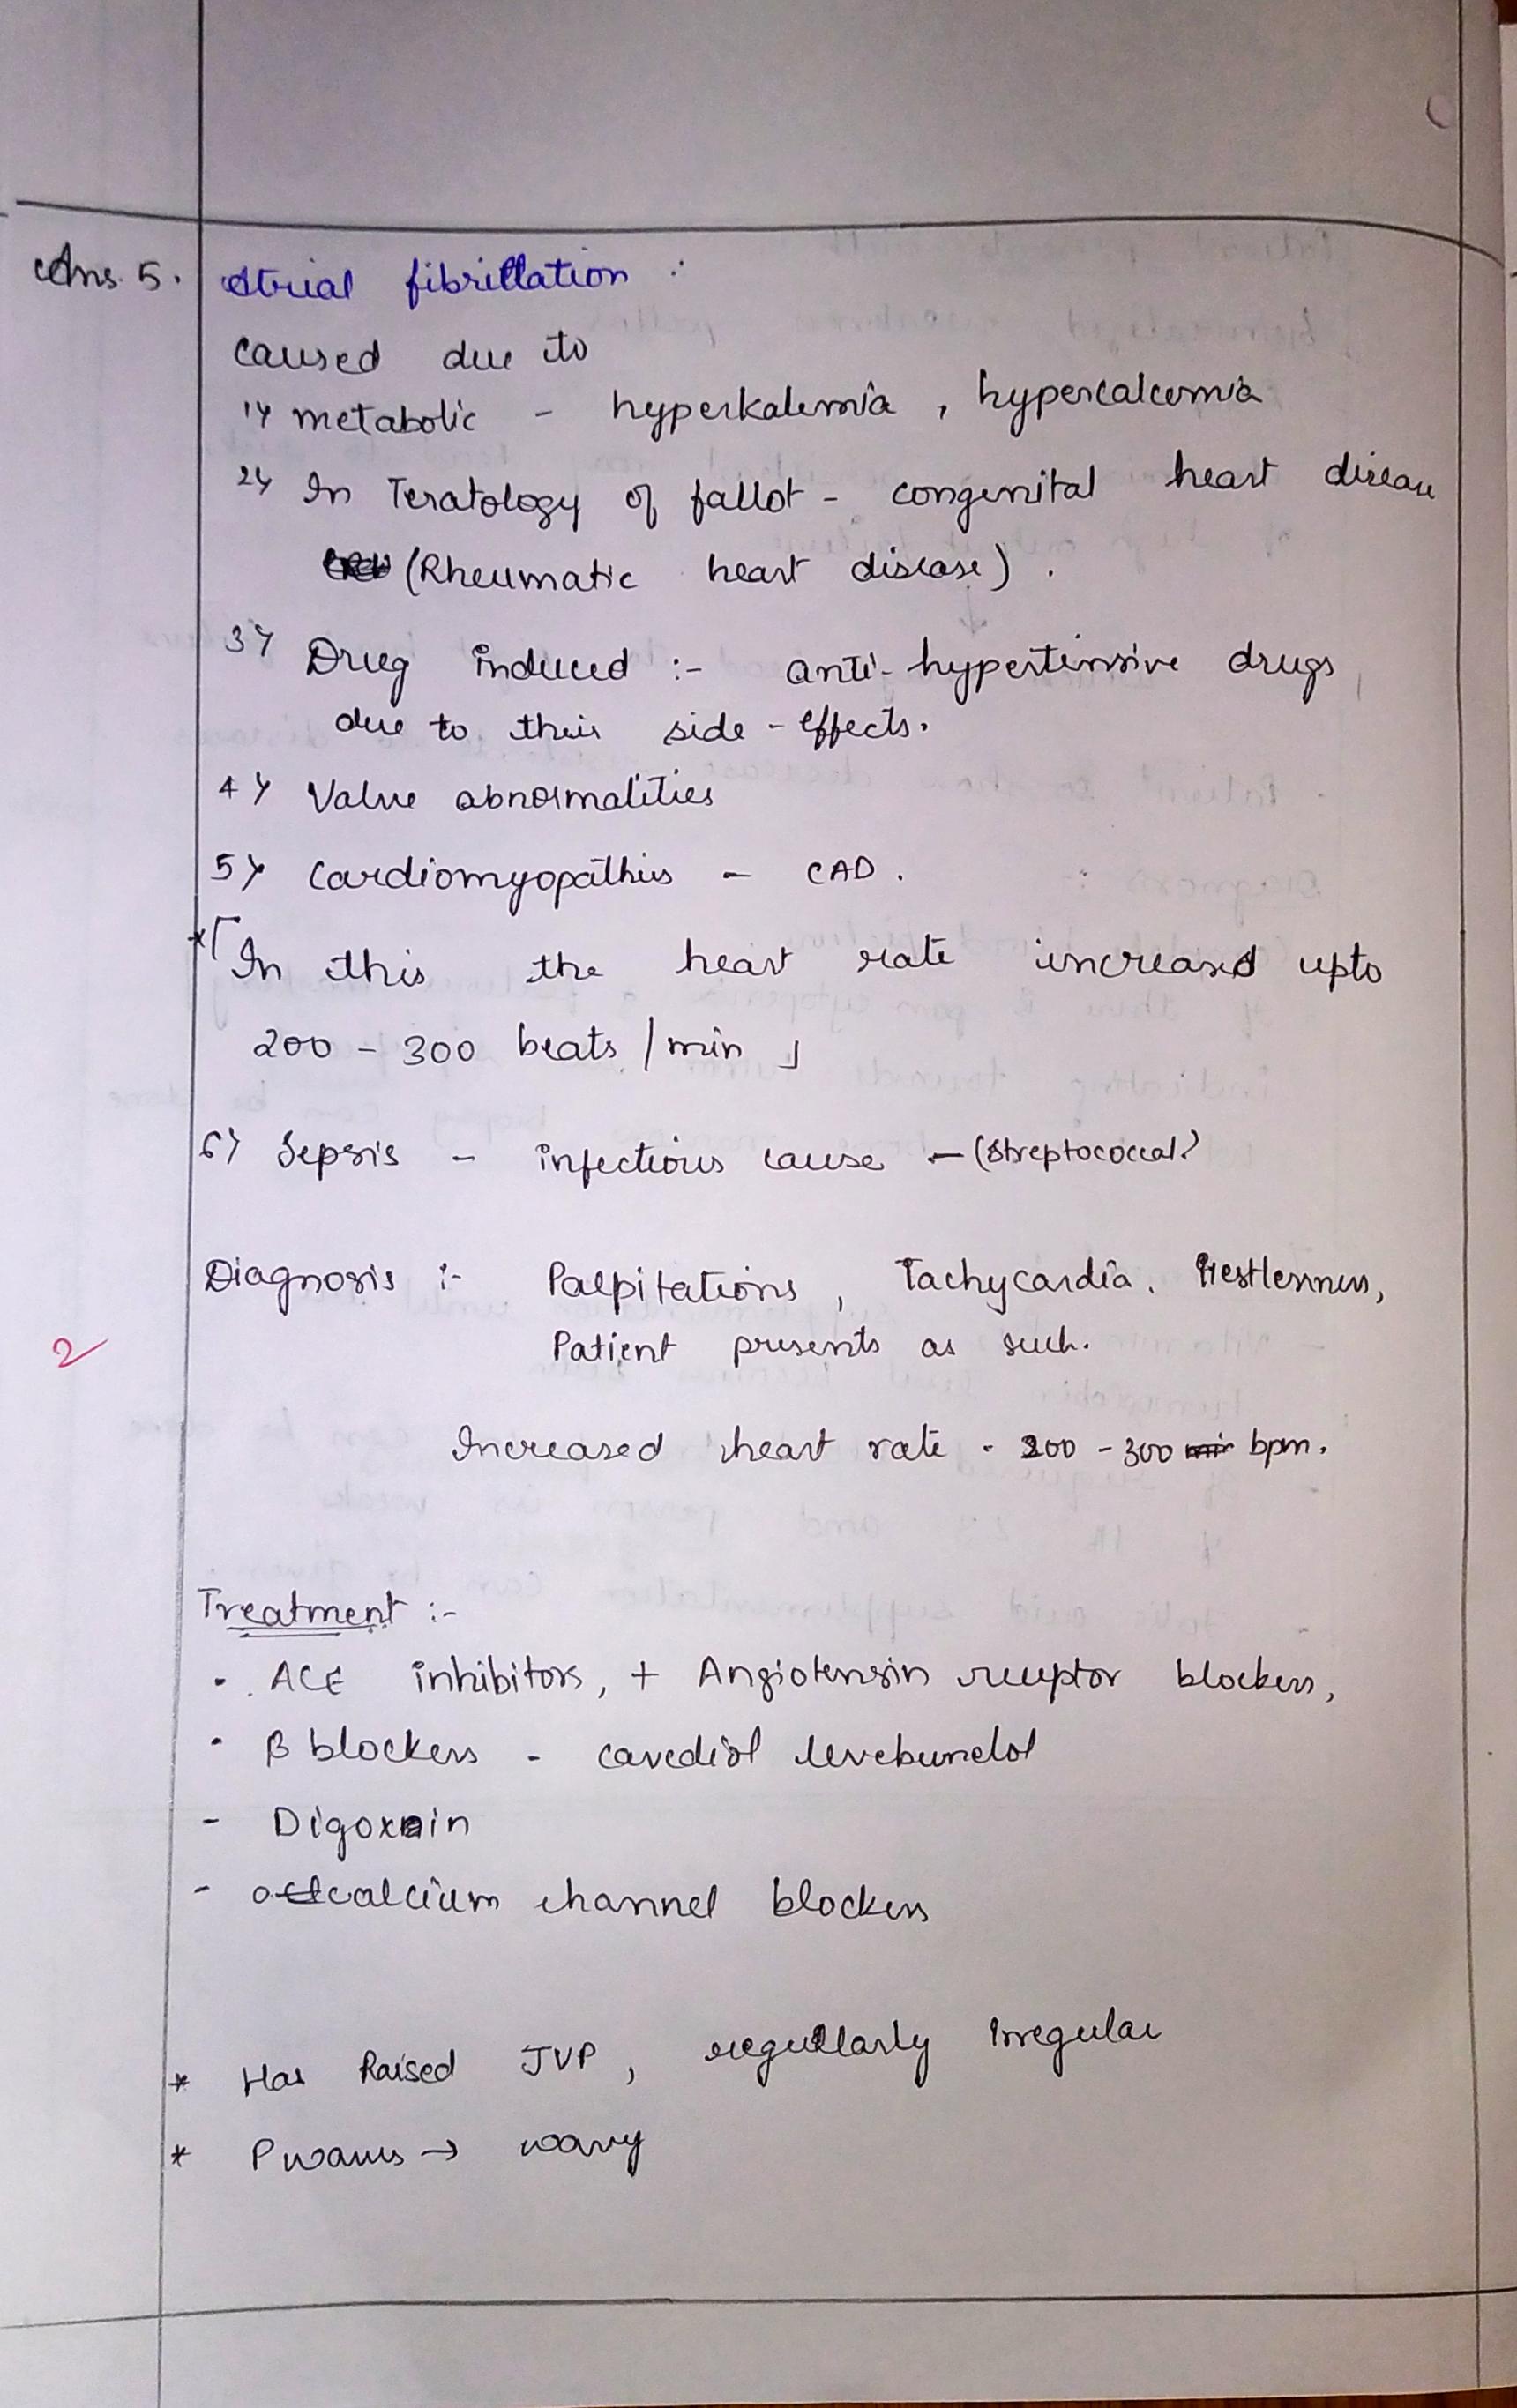 Ans. 5. Atrial fibrillation :
caused due to
1) metabolic - hyperkalemia , hypercalcemia
2) In Teratology of fallot - congenital heart disease
(Rheumatic heart disease) .
3) Drug induced :- anti-hypertensive drugs
due to their side-effects.
4) Valve abnormalities
5) Cardiomyopathies - CAD .
* [ In this the heart rate increased upto
200 - 300 beats / min ]
6) Sepsis - infectious cause - (Streptococcal)
Diagnosis :- Palpitations , Tachycardia , Restlessness,
2
Patient presents as such.
Increased heart rate - 200 - 300 min bpm.
Treatment :-
- ACE inhibitors, + Angiotensin receptor blockers,
- β blockers - cavediol levebunelol
- Digoxin
- calcium channel blockers
* Has Raised JVP , regullarly irregular
* P waves → wavy